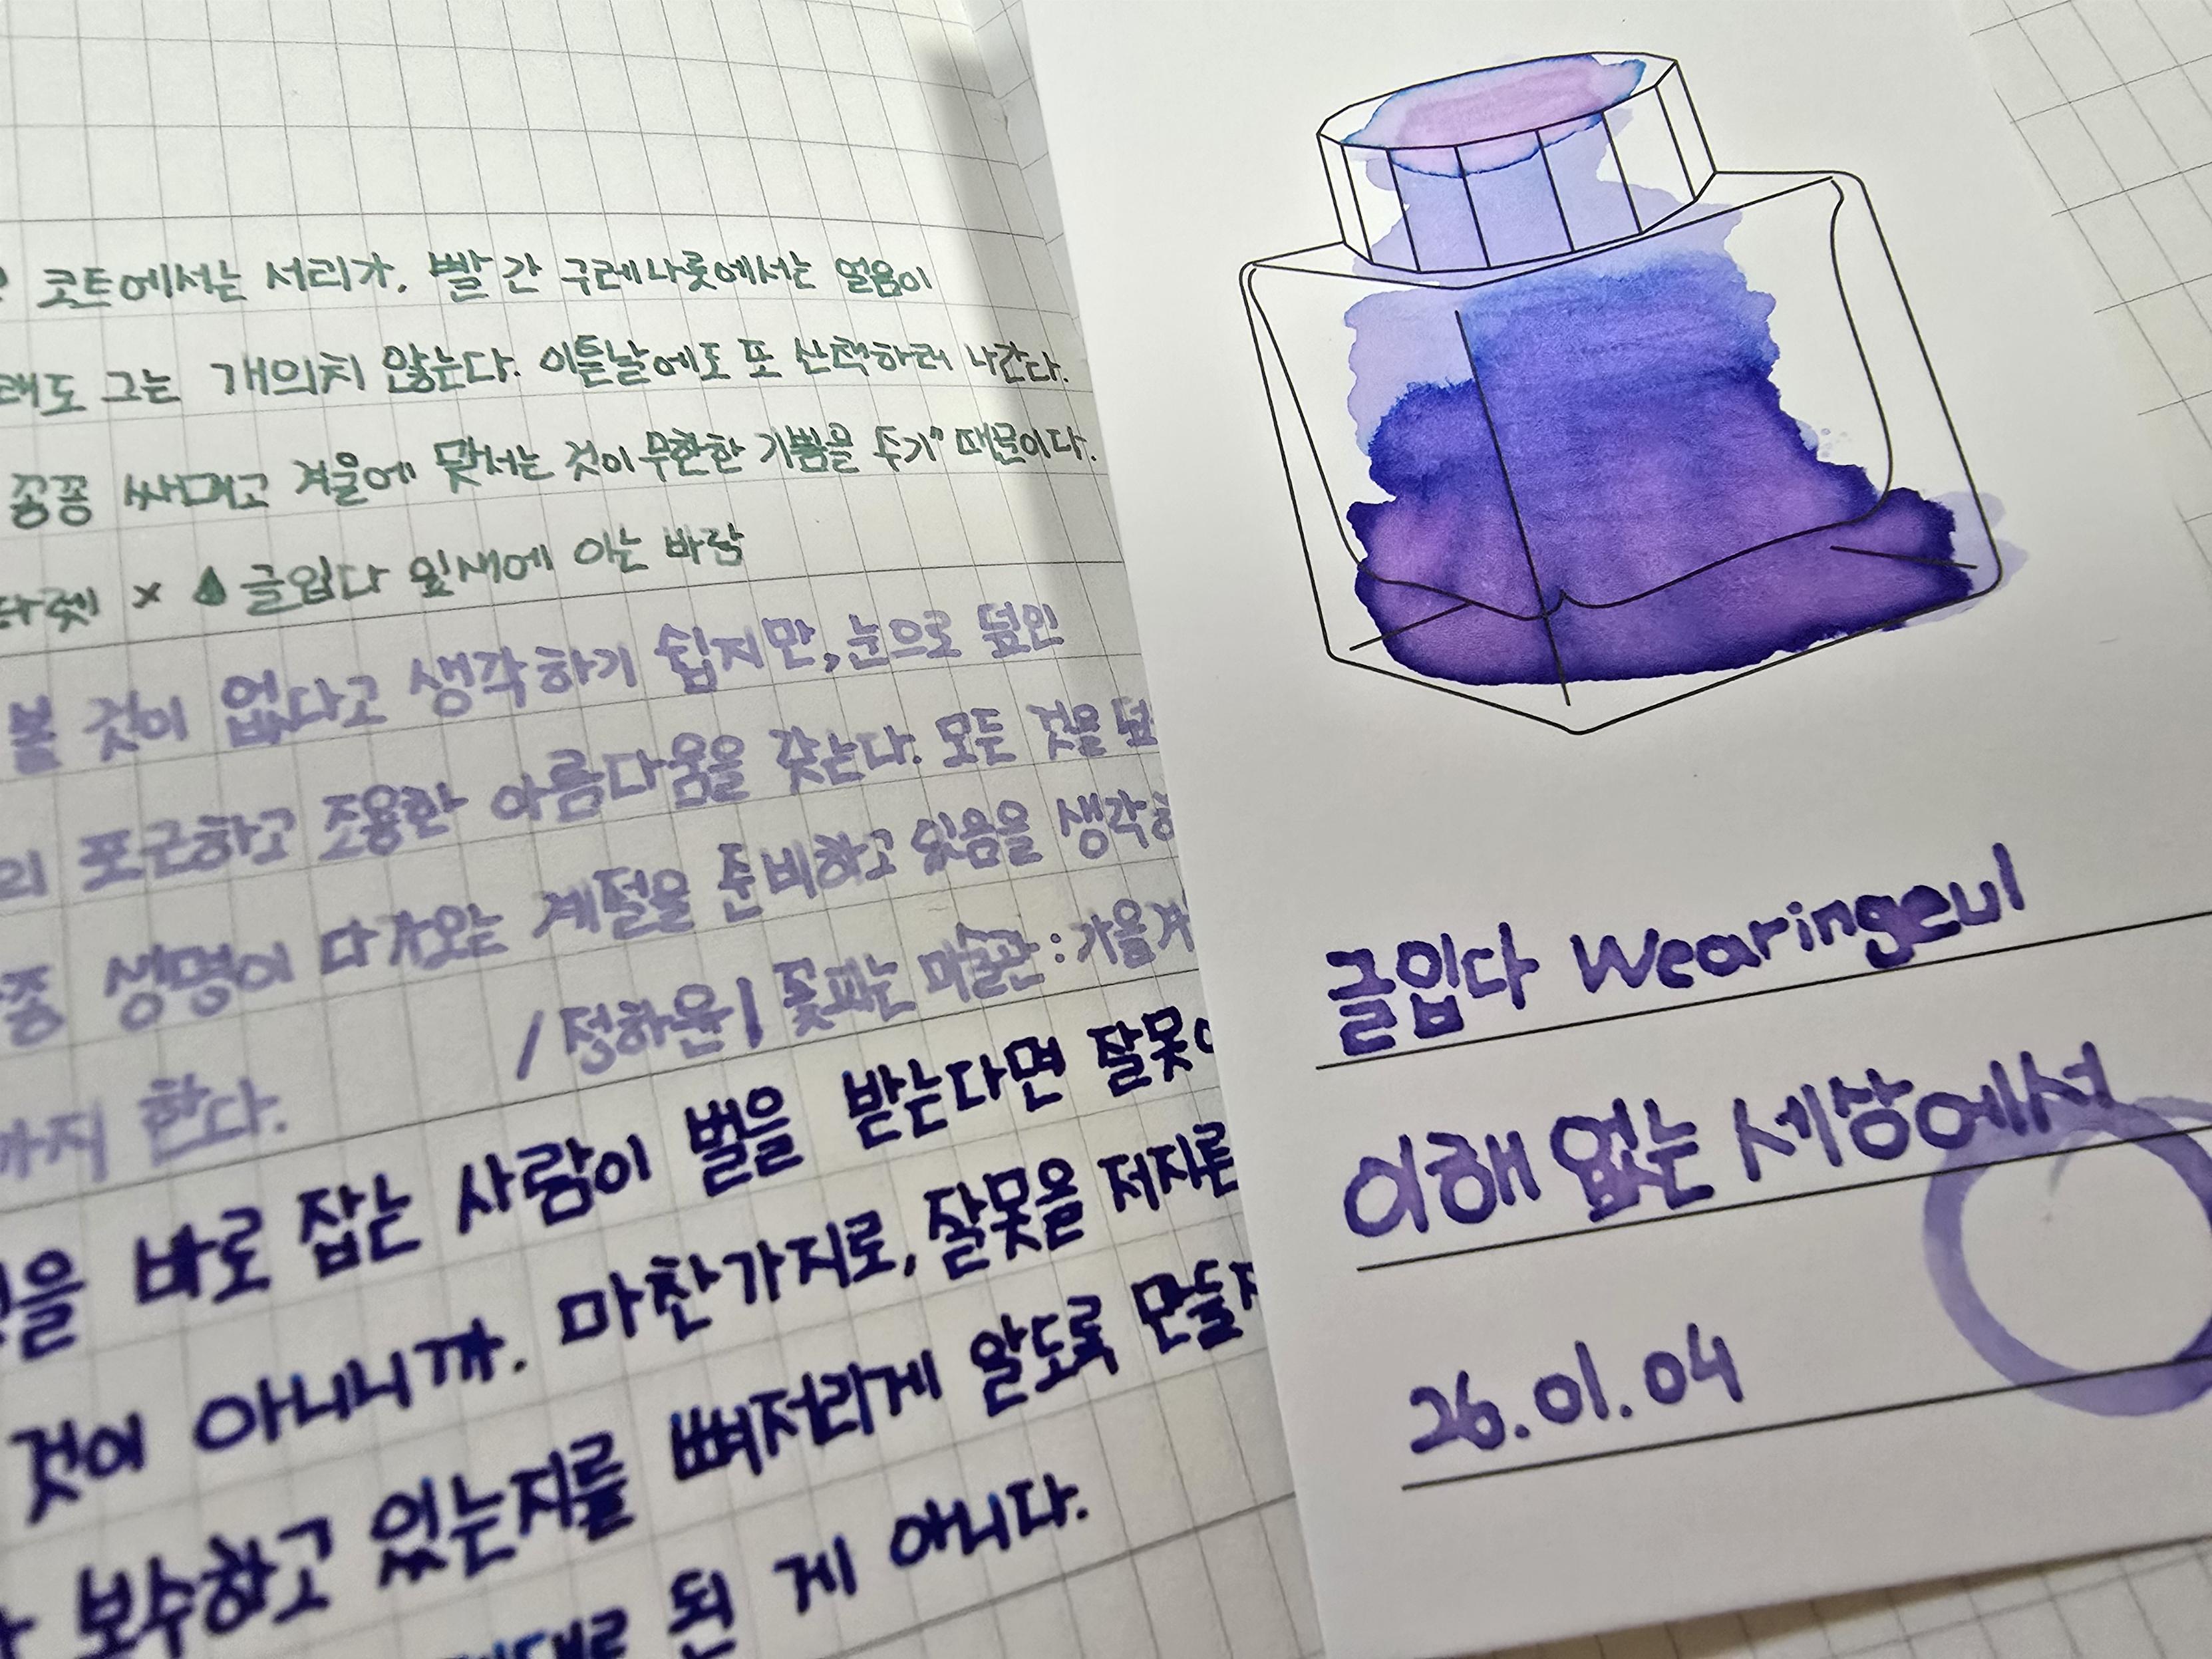 코트에서는 서리가, 빨간 구레나룻에서는 얼음이
래도 그는 개의치 않는다. 이튿날에도 또 산책하러 나간다.
꽁꽁 싸매고 겨울에 맞서는 것이 무한한 기쁨을 주기" 때문이다.
다렛 × 글입다 잎새에 이는 바람
볼 것이 없다고 생각하기 쉽지만, 눈으로 덮인
리 포근하고 조용한 아름다움을 갖는다. 모든 것을 덮
종 생명이 다가오는 계절을 준비하고 있음을 생각하
/ 정하윤 | 꽃피는 미술관 : 가을겨
까지 한다.
을 바로 잡는 사람이 벌을 받는다면 잘못이
것이 아니니까. 마찬가지로, 잘못을 저지른
보수하고 있는지를 뼈저리게 알도록 만들지
대로 된 게 아니다.
글입다 Wearingeul
이해 없는 세상에서
26.01.04